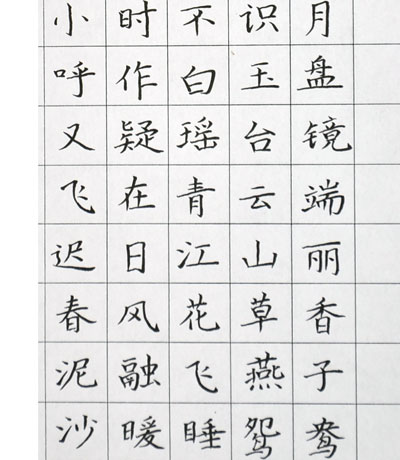 小时不识月
呼作白玉盘
又疑瑶台镜
飞在青云端
迟日江山丽
春风花草香
泥融飞燕子
沙暖睡鸳鸯